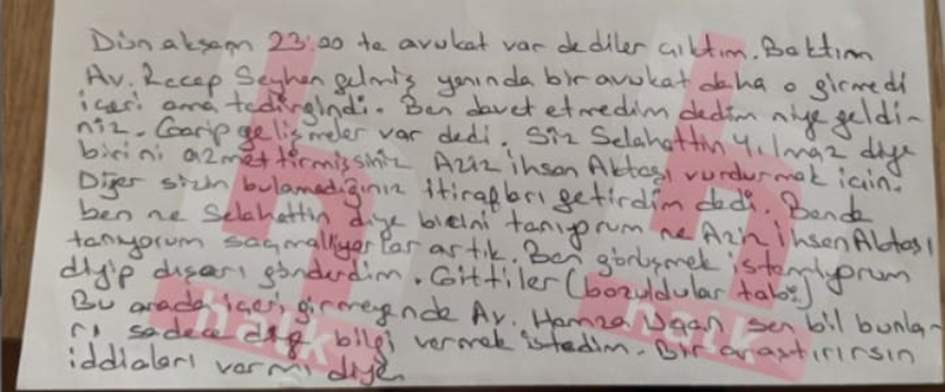 Dün akşam 23:00 te avukat var dediler çıktım. Baktım
Av. Recep Seyhan gelmiş yanında bir avukat daha o girmedi
içeri ama tedirgindi. Ben davet etmedim dedim niye geldi-
niz. Garip gelişmeler var dedi. Siz Selahattin Yılmaz diye
birini azmettirmişsiniz Aziz İhsan Aktaşı vurdurmak için.
Diğer sizin bulamadığınız itirafları getirdim dedi. Bende
ben ne Selahattin diye birini tanıyorum ne Aziz İhsan Aktaşı
tanıyorum saçmalıyorlar artık. Ben görüşmek istemiyorum
diyip dışarı gönderdim. Gittiler (bozuldular tabi)
Bu arada içeri girmeyende Av. Hamza sen bil bunla-
rı sadece diye bilgi vermek istedim. Bir araştırırsın
iddiaları var mı diye
halk
halk